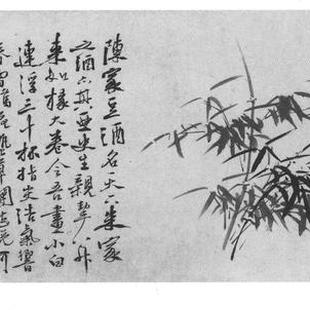 陳家豆酒名天下朱家
之酒亦其亞史甥親挈八升
來如椽大卷令吾畫小白
連浮三十杯指尖浩氣響